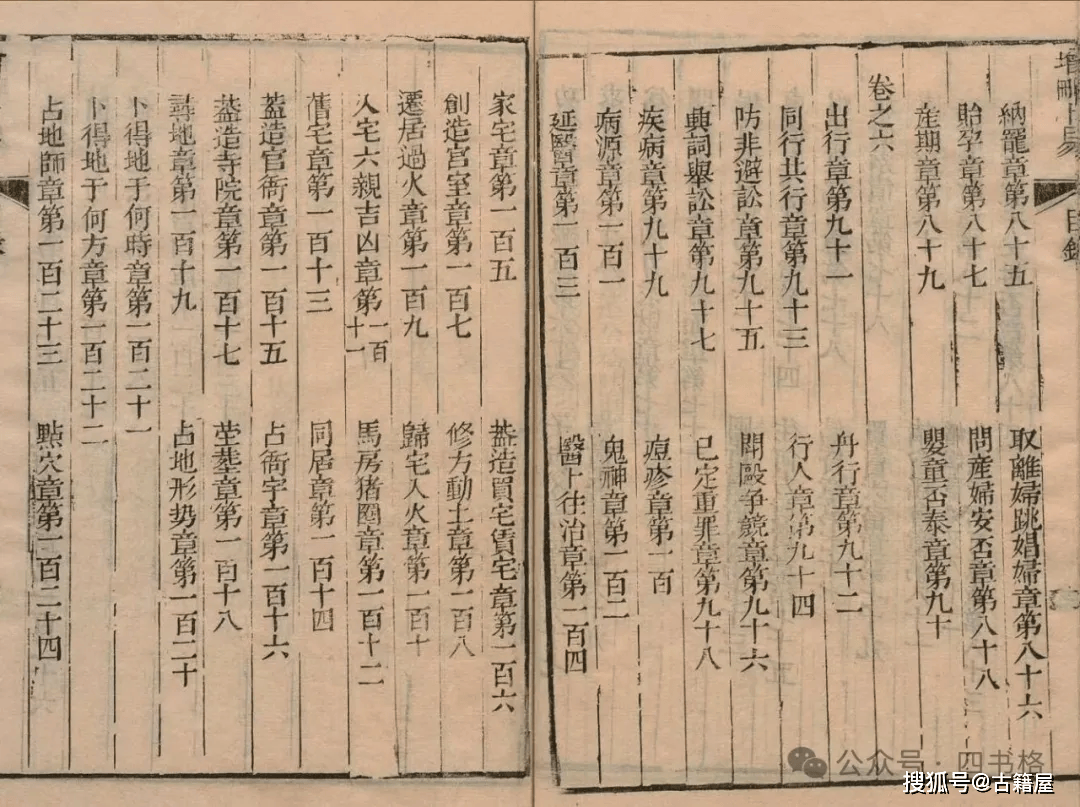 增刪卜易
目錄
納寵章第八十五 取離婦跳娼婦章第八十六
胎孕章第八十七 問產婦安否章第八十八
產期章第八十九 嬰童否泰章第九十
卷之六
出行章第九十一 舟行章第九十二
同行共行章第九十三 行人章第九十四
防非避訟章第九十五 鬪毆爭競章第九十六
興詞舉訟章第九十七 已定重罪章第九十八
疾病章第九十九 痘疹章第一百
病源章第一百一 鬼神章第一百二
延醫章第一百三 醫卜往治章第一百四
家宅章第一百五 葢造買宅賃宅章第一百六
創造宮室章第一百七 修方動土章第一百八
遷居過火章第一百九 歸宅入火章第一百十
入宅六親吉凶章第一百十一 馬房猪圈章第一百十二
舊宅章第一百十三 同居章第一百十四
葢造官衙章第一百十五 占衙宇章第一百十六
葢造寺院章第一百十七 塋墓章第一百十八
尋地章第一百十九 占地形势章第一百二十
卜得地于何時章第一百二十一
卜得地于何方章第一百二十二
占地師章第一百二十三 點穴章第一百二十四
公众号·四书格
搜狐号@古籍屋